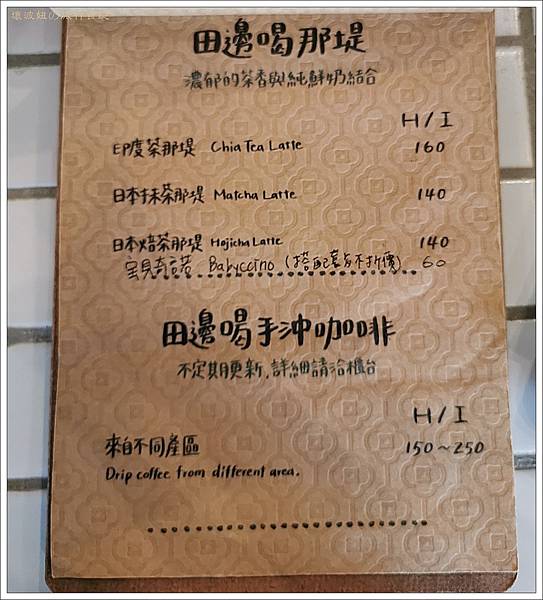 壞波妞の旅行食記
田邊喝那堤
濃郁的茶香與純鮮奶結合
H / I
印度茶那堤 Chia Tea Latte 160
日本抹茶那堤 Matcha Latte 140
日本焙茶那堤 Hojicha Latte 140
宝貝奇諾 Babyccino (搭配套餐不折價) 60
田邊喝手沖咖啡
不定期更新.詳細請洽櫃台
H / I
來自不同產區 150~250
Drip coffee from different area.